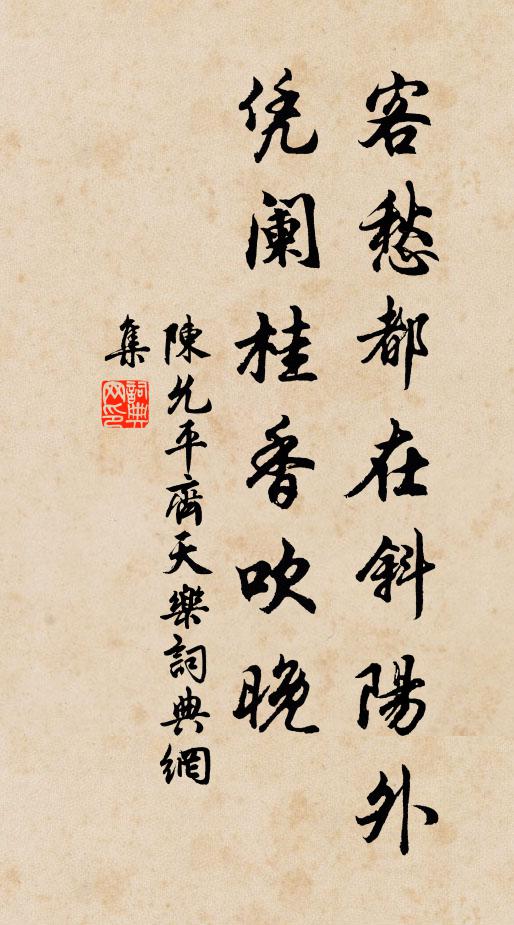 客愁都在斜陽外
凭阑桂香吹晚
陳允平齊天樂詞典網
集
詞典网印